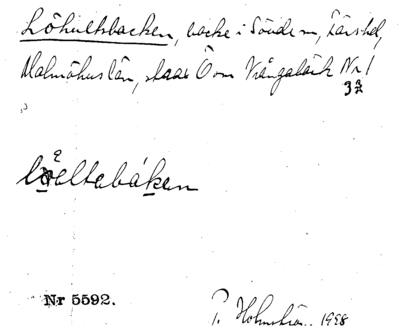 Löhultsbacken, backe i Södde m, Färs hd,
Malmöhus län, skaas Ö om Vrångabäck Nr 1
3
löeltebáken
Nr 5592.
P. Holmström. 1928